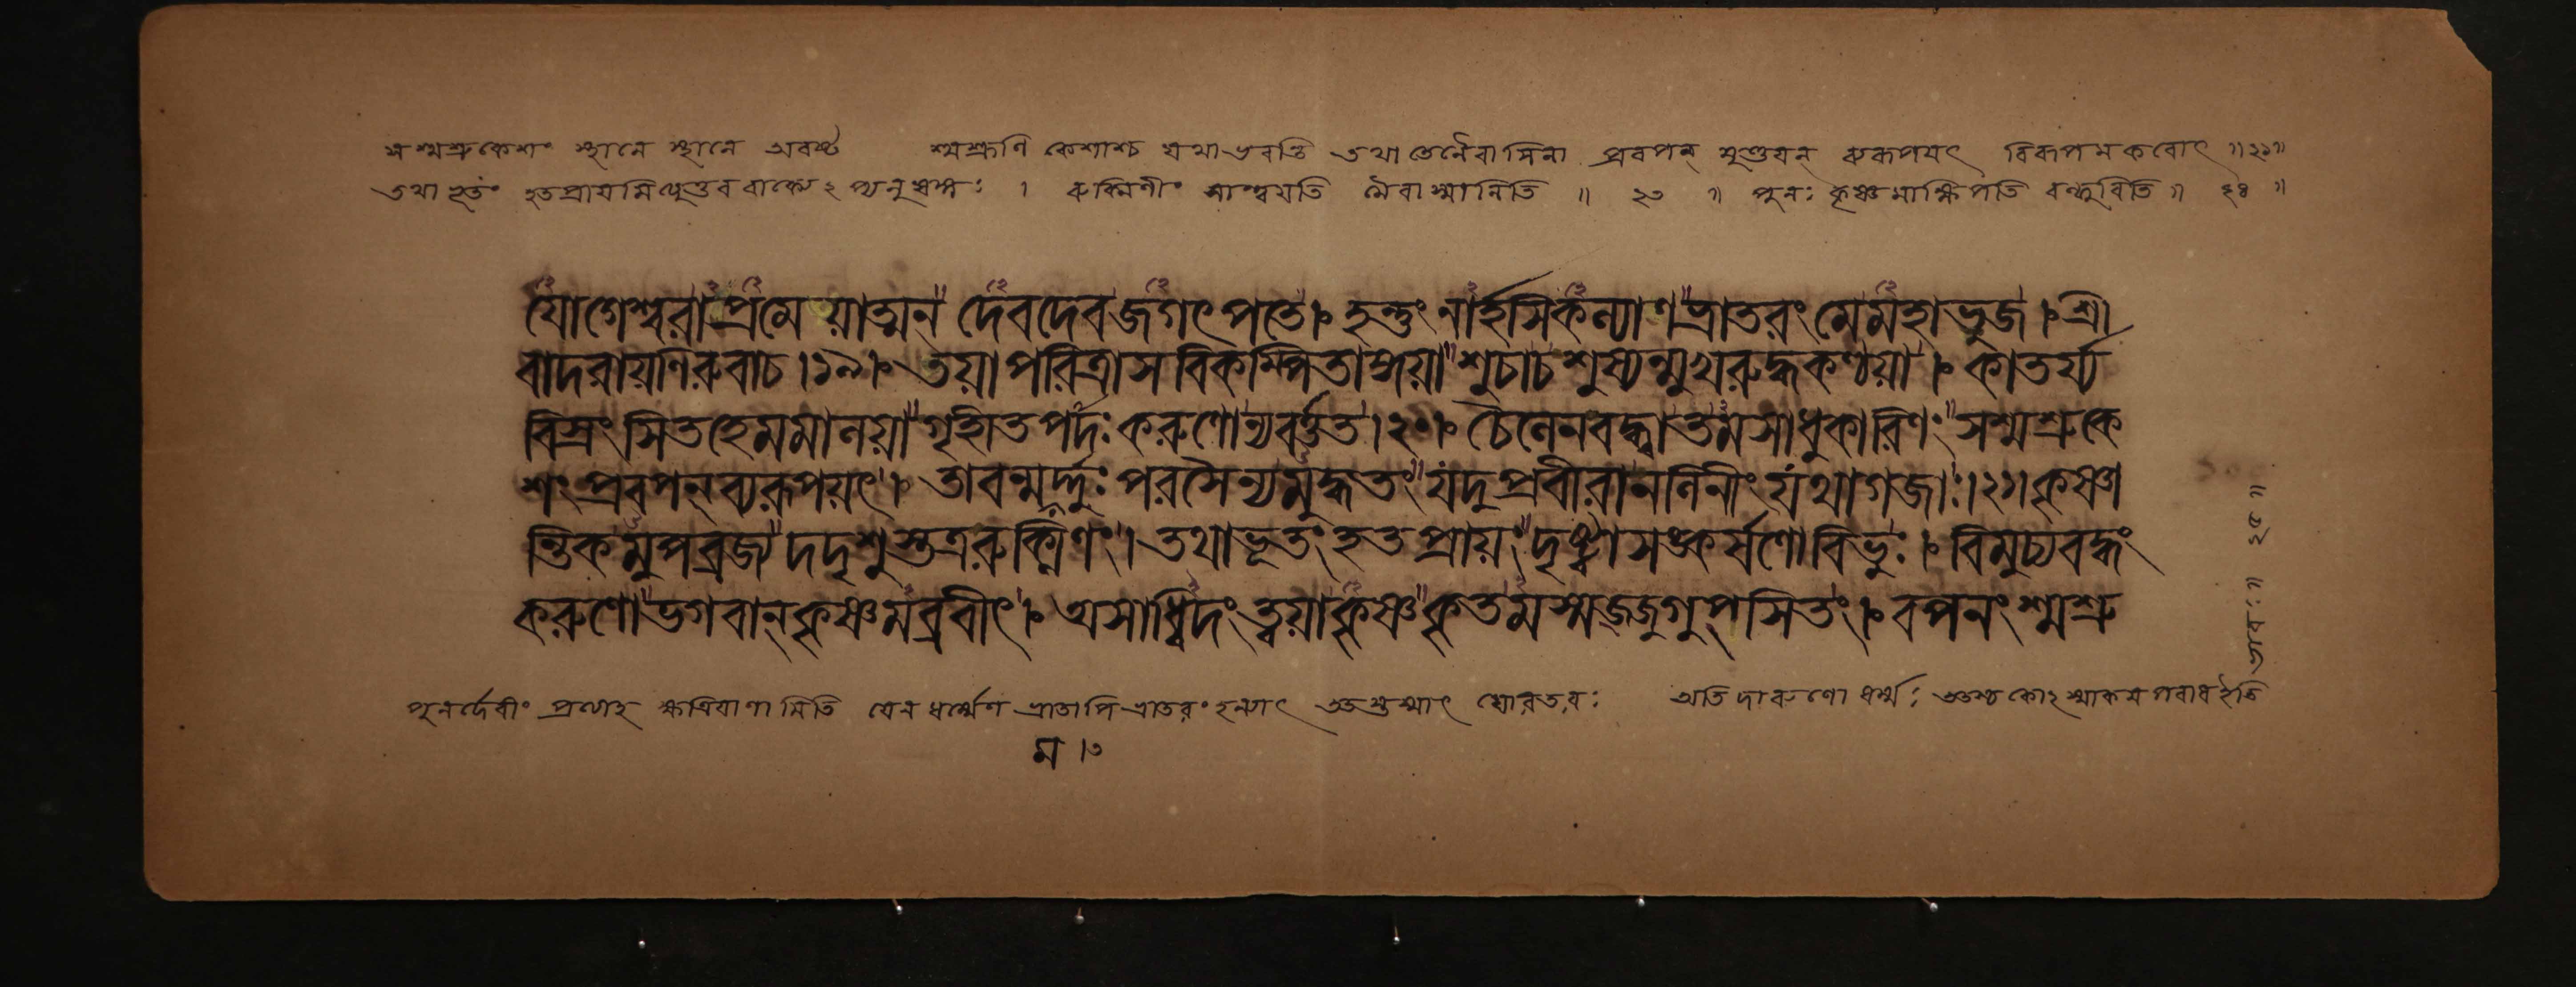 সশ্মশ্রুকেশং স্থানে স্থানে অবশিষ্ট শ্মশ্রূণি কেশাশ্চ যথা ভবন্তি তথা তেনৈবাসিনা প্রবপন্ মুণ্ডয়ন্ ব্যরূপয়ৎ বিরূপমকরোৎ ॥২১॥
তথাভূতং হতপ্রায়মিত্যুত্তরবাক্যেঽপ্যনুষঙ্গঃ । রুক্মিণীং সান্ত্বয়তি মৈবাস্মানিতি ॥ ২৩ ॥ পুনঃ কৃষ্ণমাক্ষিপতি বন্ধুরিতি ॥ ২৪ ॥
যোগেশ্বরাপ্রমেয়াত্মন্ দেবদেব জগৎপতে । হন্তুং নার্হসি কল্যাণ ভ্রাতরং মে মহাভুজ । শ্রী
বাদরায়ণিরুবাচ । ১৯ । তয়া পরিত্রাস বিকম্পিতাঙ্গয়া শুচাচশুষ্যন্মুখরুদ্ধকণ্ঠয়া । কাতর্য্য
বিস্রংসিতহেমমালয়া গৃহীতপদঃ করুণোন্যবর্ত্তত । ২০ । চৈলেনবদ্ধ্বাতমসাধুকারিণং সশ্মশ্রুকে
শং প্রবপন্ ব্যরূপয়ৎ । তাবন্মমর্দ্দুঃ পরসৈন্যমদ্ভুতং যদুপ্রবীরানলিনীং যথাগজাঃ । ২১ । কৃষ্ণা
ন্তিকমুপব্রজ্য দদৃশুস্তত্ররুক্মিণং । তথাভূতং হতপ্রায়ং দৃষ্ট্বাসঙ্কর্ষণোবিভুঃ । বিমুচ্যবদ্ধং
করুণোভগবান্ কৃষ্ণমব্রবীৎ । অসাধ্বিদং ত্বয়াকৃষ্ণকৃতমস্মজ্জুগুপ্সিতং । বপনং শ্মশ্রু
পুনর্দেবীং প্রত্যাহ ক্ষত্রিয়াণামিতি যেন ধর্ম্মেণ ভ্রাতাপি ভ্রাতরং হন্যাৎ অতস্তস্মাৎ ঘোরতরঃ অতি দারুণো ধর্ম্মঃ অতশ্চ কোঽস্মাকমপরাধ ইতি
ভাবঃ ॥ ২৫ ॥
ম ।৩